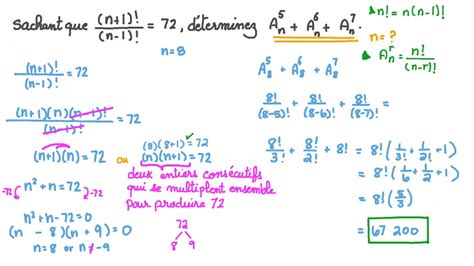 sachant que (n+1)!/(n-1)! = 72, déterminez A_n^5 + A_n^6 + A_n^7.
▲ n! = n(n-1)!
n = ?
▲ A_n^r = n!/(n-r)!
n=8
(n+1)!/(n-1)! = 72
(n+1)(n)(n-1)!/(n-1)! = 72
(n+1)(n) = 72 ou (n)(n+1) = 72
(8)(8+1) = 72 ✓
deux entiers consécutifs
qui se multiplient ensemble
pour produire 72
72
8 9
-72 n² + n = 72 -72
n² + n - 72 = 0
(n - 8)(n + 9) = 0
n = 8 or n ≠ -9
A_8^5 + A_8^6 + A_8^7
8!/(8-5)! + 8!/(8-6)! + 8!/(8-7)! =
8!/3! + 8!/2! + 8! = 8!(1/3! + 1/2! + 1)
= 8!(1/6 + 1/2 + 1)
= 8!(5/3)
= 67 200